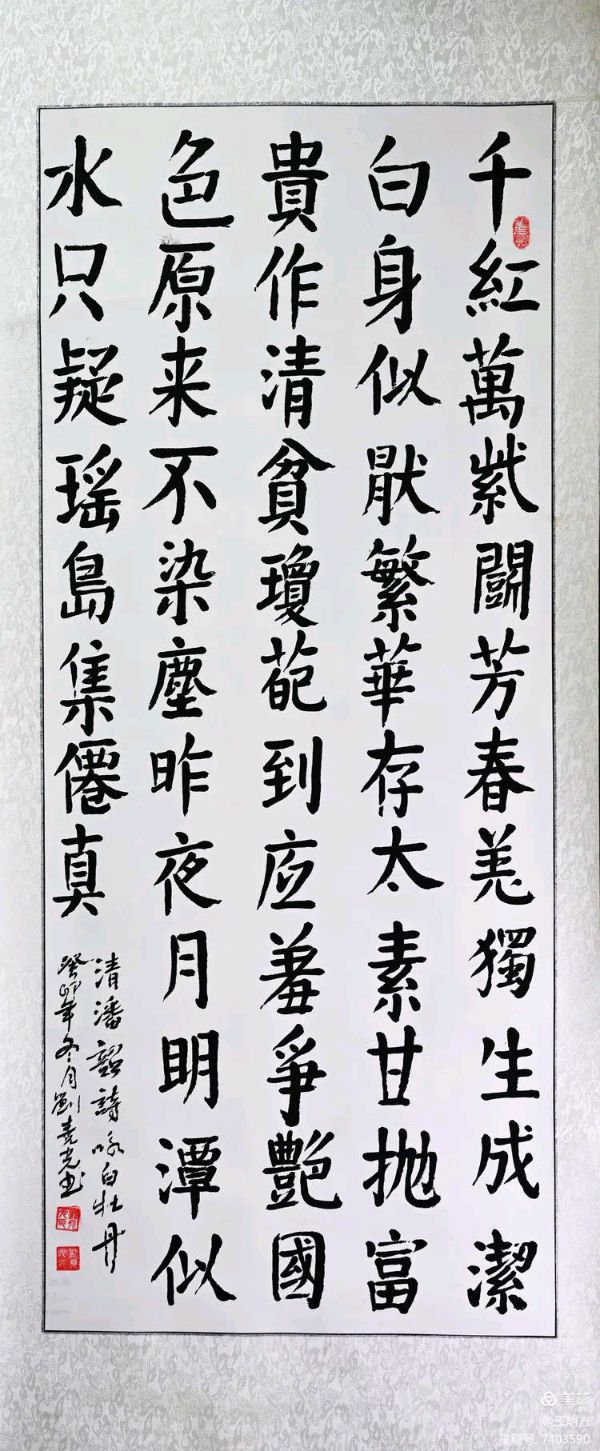 千紅萬紫鬪芳春羌獨生成潔
白身似厭繁華存太素甘抛富
貴作清貧瓊葩到应羞爭艷國
色原来不染塵昨夜月明潭似
水只疑瑶島集僊真
清潘韶詩咏白牡丹
癸卯年冬月劉堯光书
美篇
@王明方
美篇号:7403590